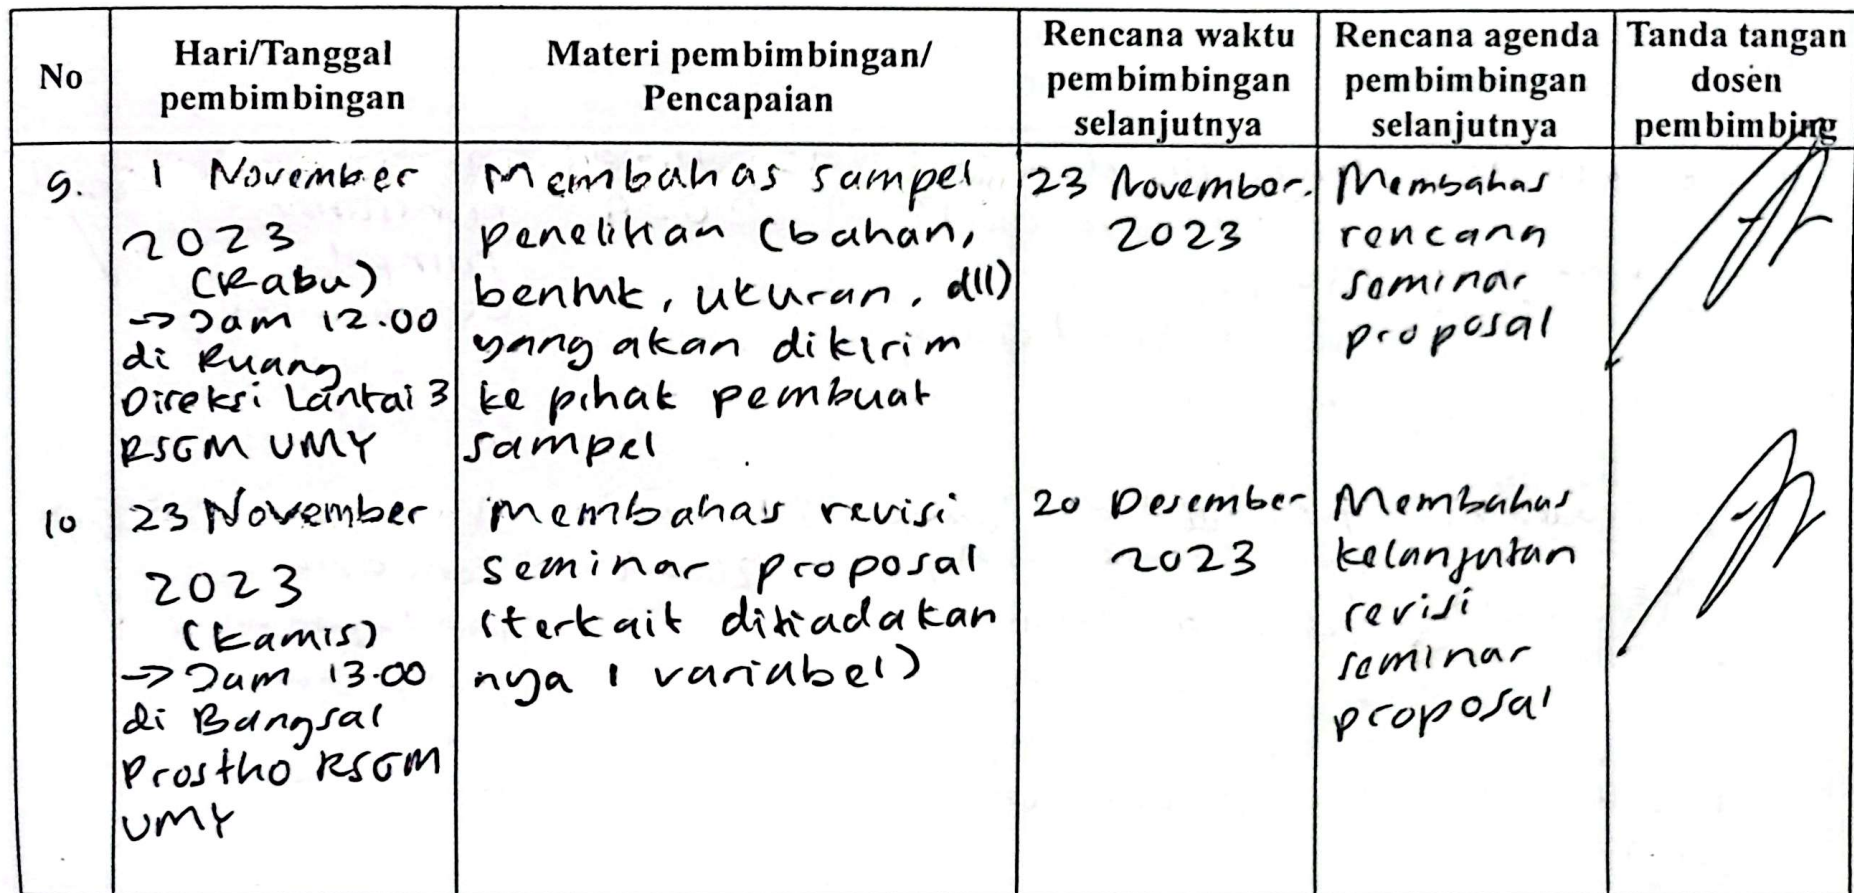 No
Hari/Tanggal
pembimbingan
Materi pembimbingan/
Pencapaian
Rencana waktu
pembimbingan
selanjutnya
Rencana agenda
pembimbingan
selanjutnya
Tanda tangan
dosen
pembimbing
9.
1 November
2023
(Rabu)
→ Jam 12.00
di Ruang
Direksi Lantai 3
RSGM UMY
Membahas sampel
penelitian (bahan,
bentuk, ukuran, dll)
yang akan dikirim
ke pihak pembuat
sampel
23 November.
2023
Membahas
rencana
seminar
proposal
10
23 November
2023
(Kamis)
→ Jam 13.00
di Bangsal
Prostho RSGM
UMY
Membahas revisi
seminar proposal
(terkait ditiadakan
nya 1 variabel)
20 Desember
2023
Membahas
kelanjutan
revisi
seminar
proposal